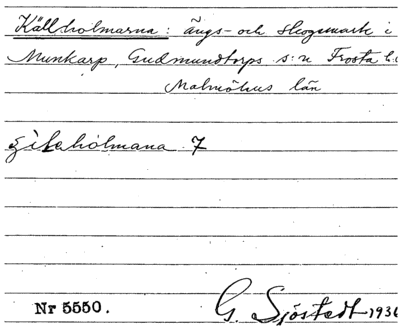 Källholmarna: Ängs- och Skogsmark i
Munkarp, Gudmundtorps s:n Frosta h:d
Malmöhus län
holmana 7
Nr 5550.
G. Sjöstedt 1936